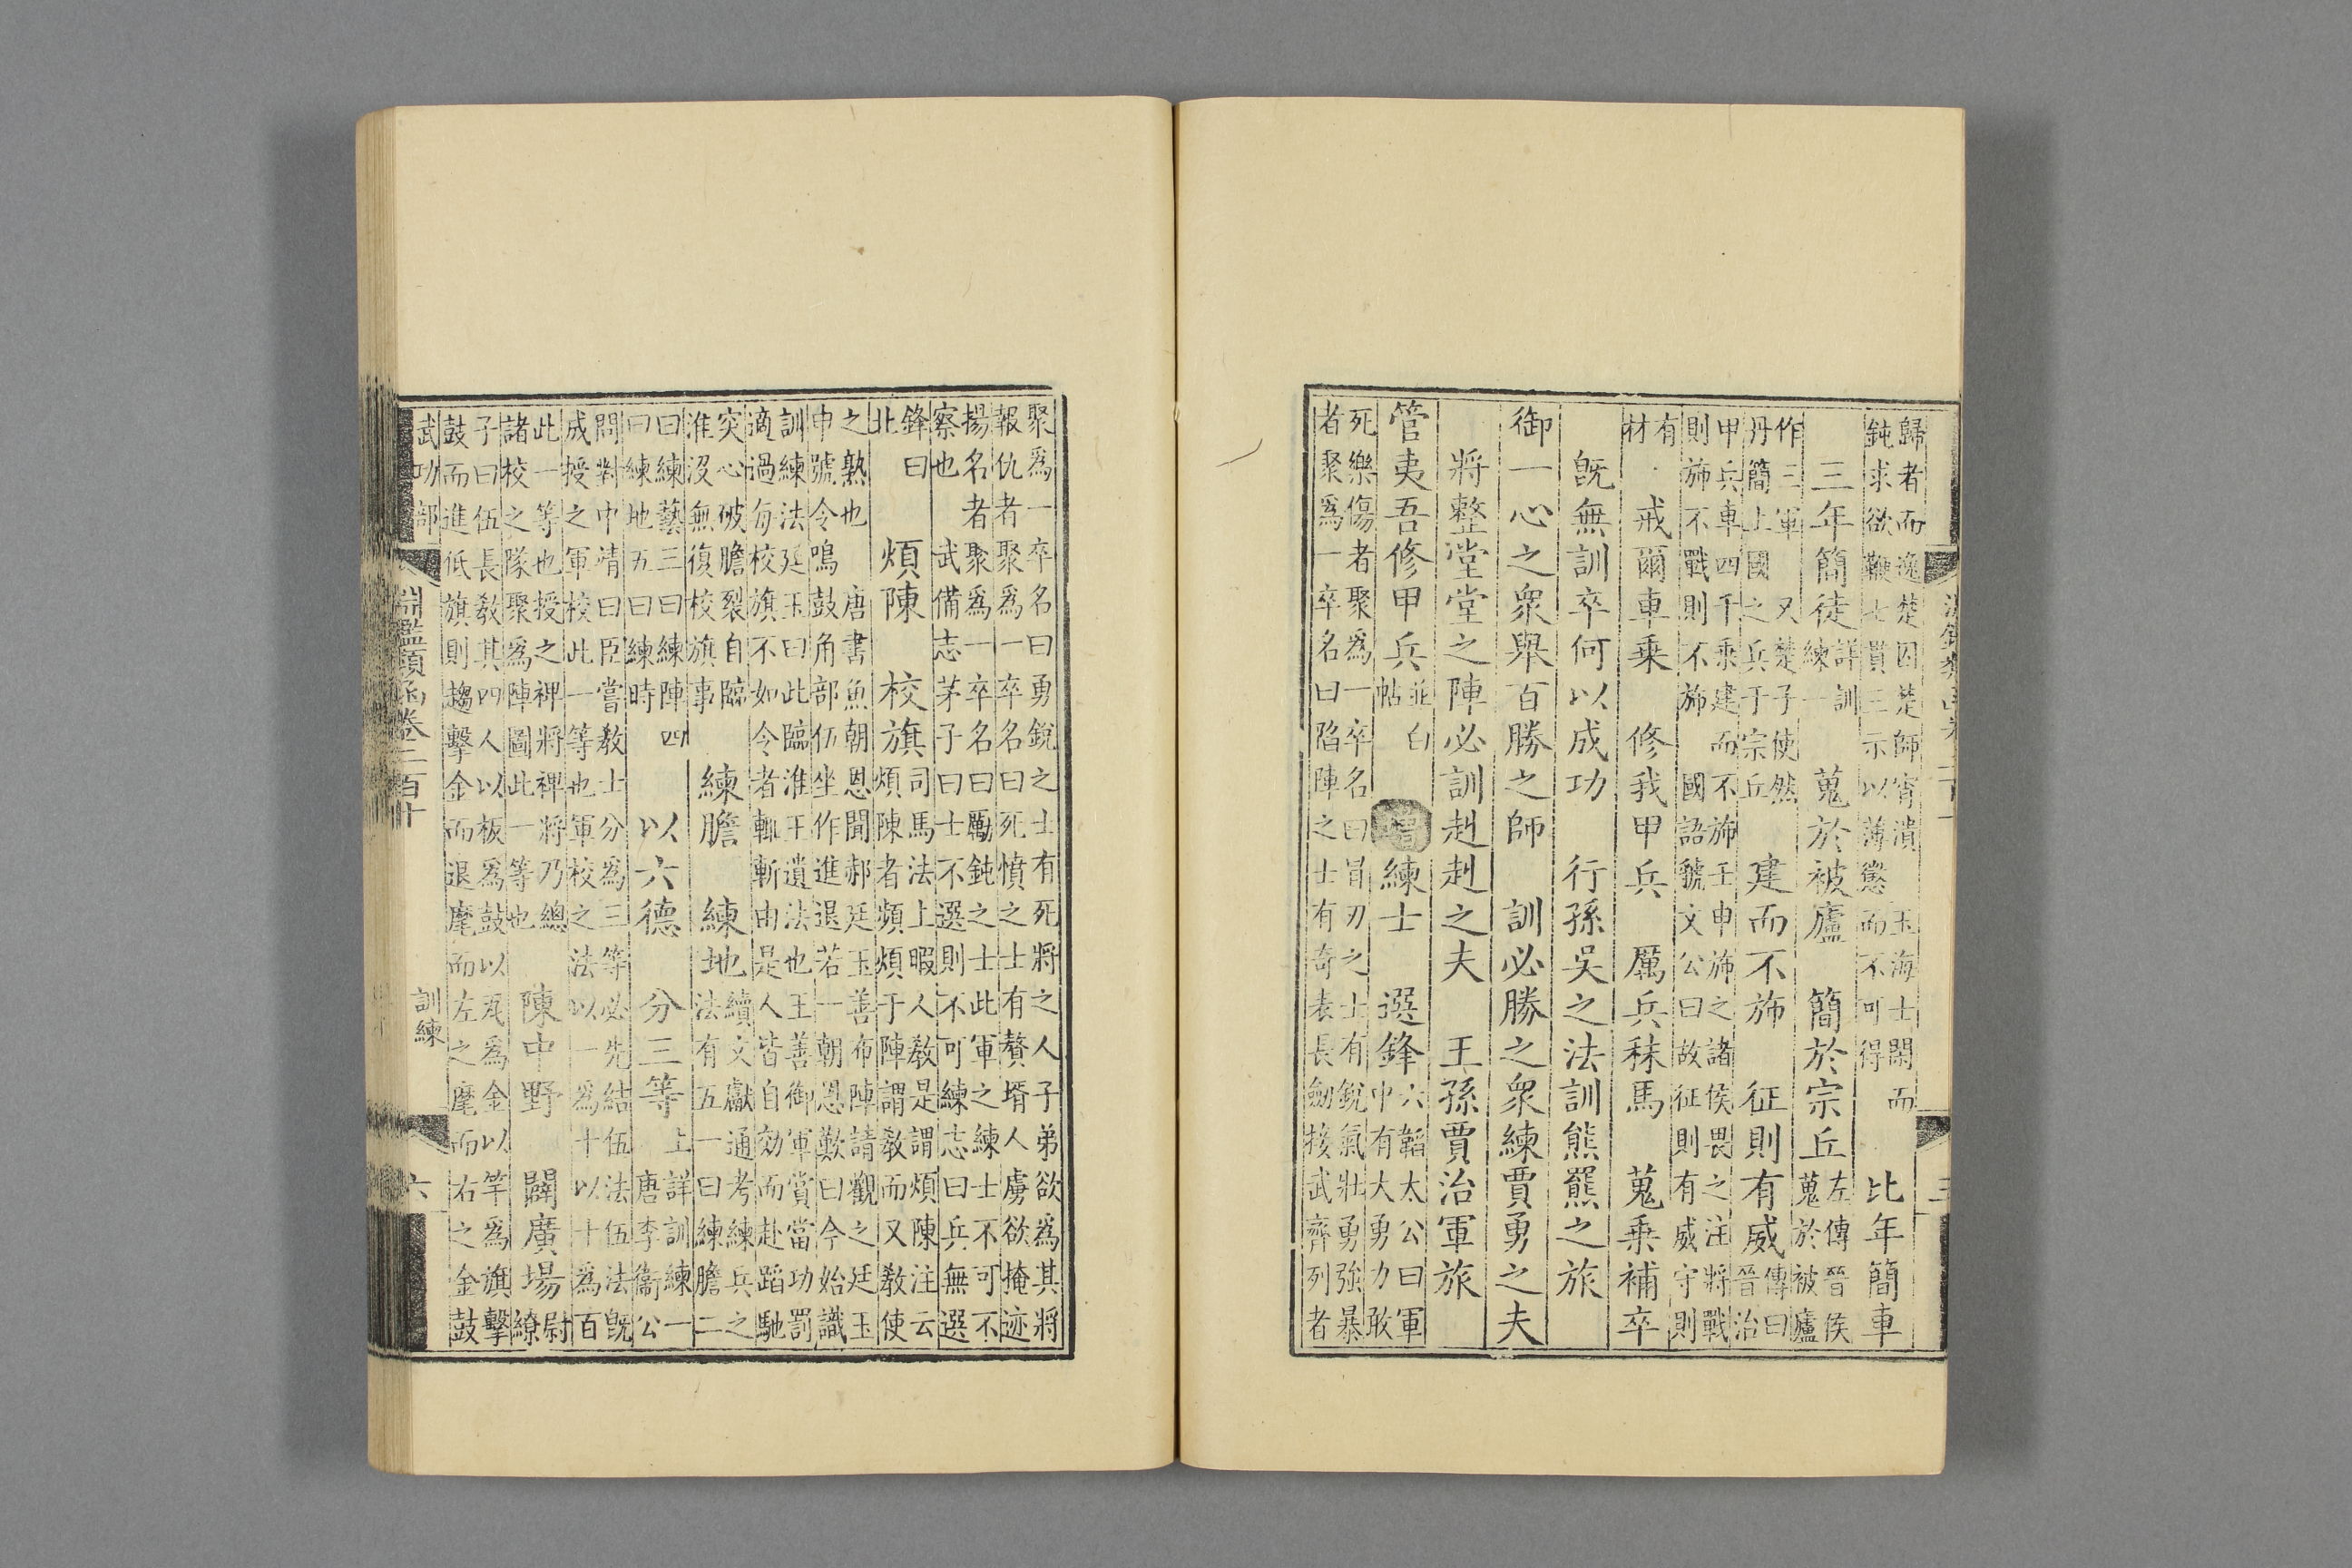 歸者而逸楚囚楚師宵潰 玉海士閑而
鈍求欲鞭七貫三示以薄懲 而不可得 比年簡車
三年簡徒 詳訓練一 蒐於被廬 簡於宗丘 左傳晉侯蒐於被廬
作三軍 又楚子使然丹簡上國之兵于宗丘 建而不斾 征則有威 傳曰晉治
甲兵車四千乘建而不斾壬申斾之諸侯畏之注將戰
則斾不戰則不斾 國語虢文公曰故征則有威守則
有材 戒爾車乘 修我甲兵 厲兵秣馬 蒐乘補卒
既無訓卒何以成功 行孫吳之法訓熊羆之旅
御一心之衆舉百勝之師 訓必勝之衆練賈勇之夫
將整堂堂之陣必訓赳赳之夫 王孫賈治軍旅
管夷吾修甲兵 並白帖 增 練士 選鋒 六韜太公曰軍中有大勇力敢
死樂傷者聚爲一卒名曰冒刃之士有銳氣壯勇強暴
者聚爲一卒名曰陷陣之士有奇表長劒接武齊列者
三
聚爲一卒名曰勇銳之士有死將之人子弟欲爲其將
報仇者聚爲一卒名曰死憤之士有贅壻人虜欲掩迹
揚名者聚爲一卒名曰勵鈍之士此軍之練士不可不
察也 武備志茅子曰士不選則不可練志曰兵無選
鋒曰北 煩陳 校旗 司馬法上暇人敎是謂煩陳注云煩陳者頻煩于陣謂敎而又敎使
之熟也 唐書魚朝恩聞郝廷玉善布陣請觀之廷玉
申號令鳴鼓角部伍坐作進退若一朝恩歎曰今始識
訓練法廷玉曰此臨淮王遺法也王善御軍賞當功罰
適過每校旗不如令者輒斬由是人皆自効而赴蹈馳
突心破膽裂自臨淮沒無復校旗事 練膽 練地 續文獻通考練兵之法有五一曰練膽二
曰練藝三曰練陣四曰練地五曰練時 以六德 分三等 上詳訓練一唐李衞公
問對中靖曰臣嘗敎士分爲三等必先結伍法伍法既
成授之軍校此一等也軍校之法以一爲十以十爲百
此一等也授之裨將裨將乃總諸校之隊聚爲陣圖此一等也 陳中野 闢廣場 尉繚
子曰伍長敎其四人以板爲鼓以瓦爲金以竿爲旗擊
鼓而進低旗則趨擊金而退麾而左之麾而右之金鼓
武功部 淵鑑類函卷二百十 訓練 六